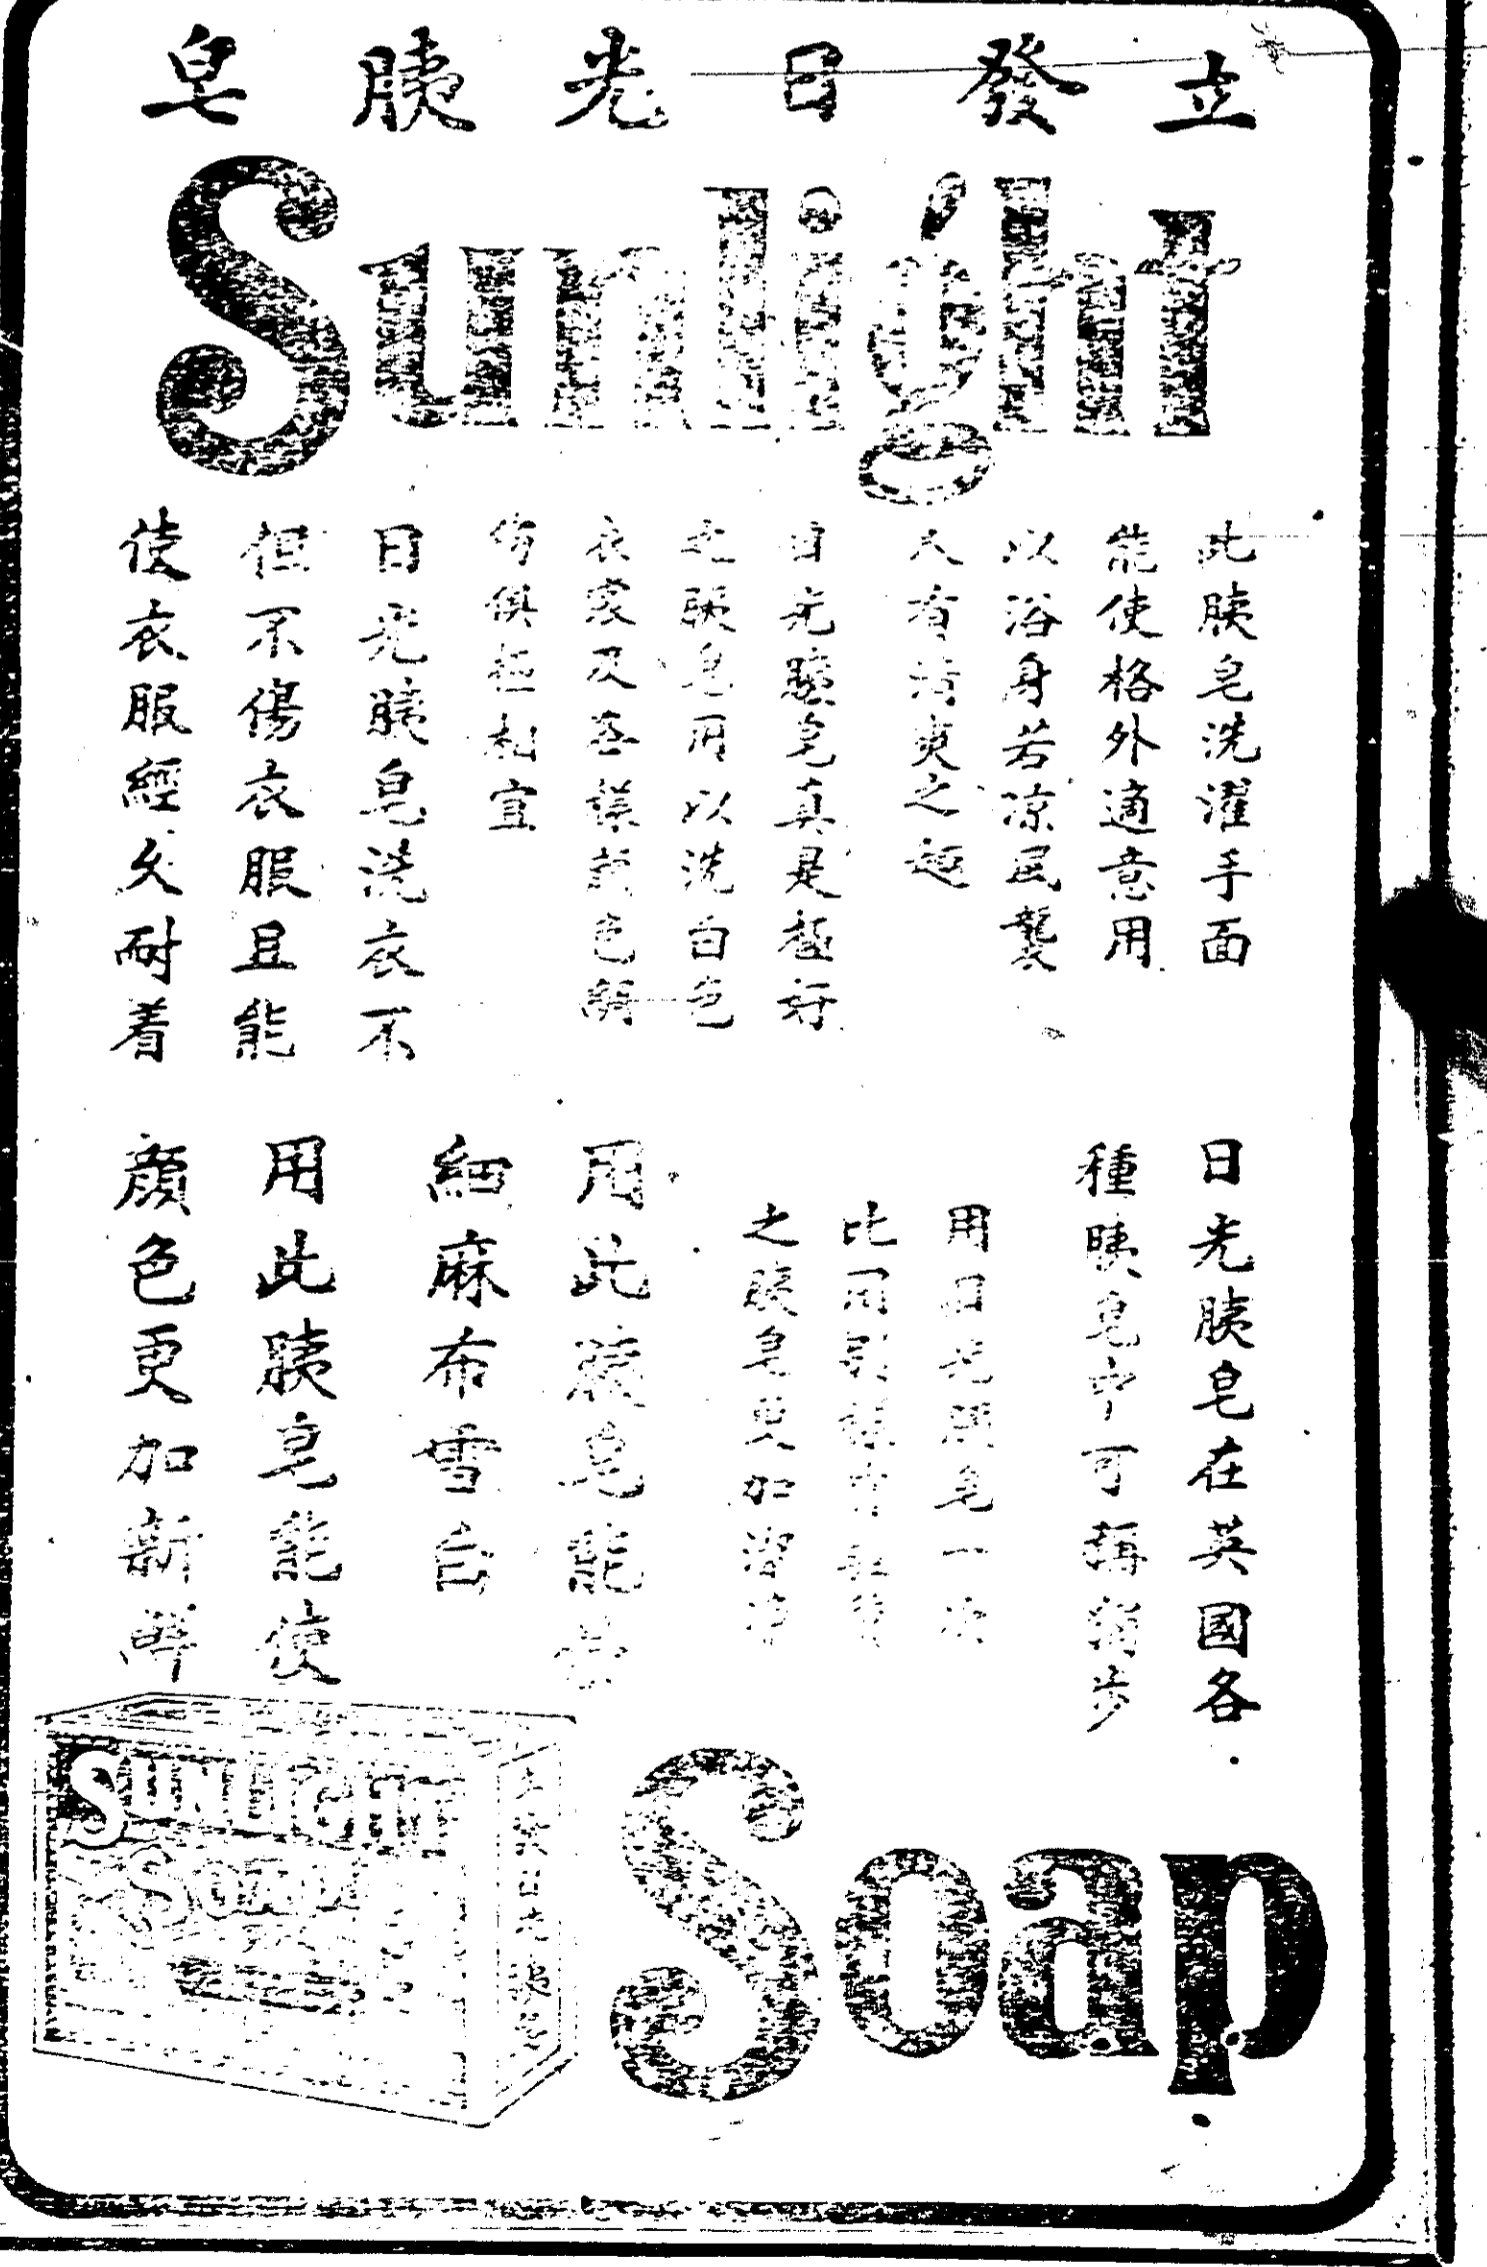 立發日光胰皂
Sunlight
此胰皂洗濯手面
能使格外適意用
以浴身若涼風襲
人有清爽之趣
日光胰皂真是極好
之胰皂用以洗白色
衣裳及各樣顏色綢
俱極相宜
日光胰皂洗衣不
但不傷衣服且能
使衣服經久耐着
日光胰皂在英國各
種胰皂中可稱獨步
用日光胰皂一次
比用別
之胰皂更加
用此胰皂能
細麻布雪白
用此胰皂能使
顏色更加新鮮
Sunlight
Soap
立發日光胰皂
Soap